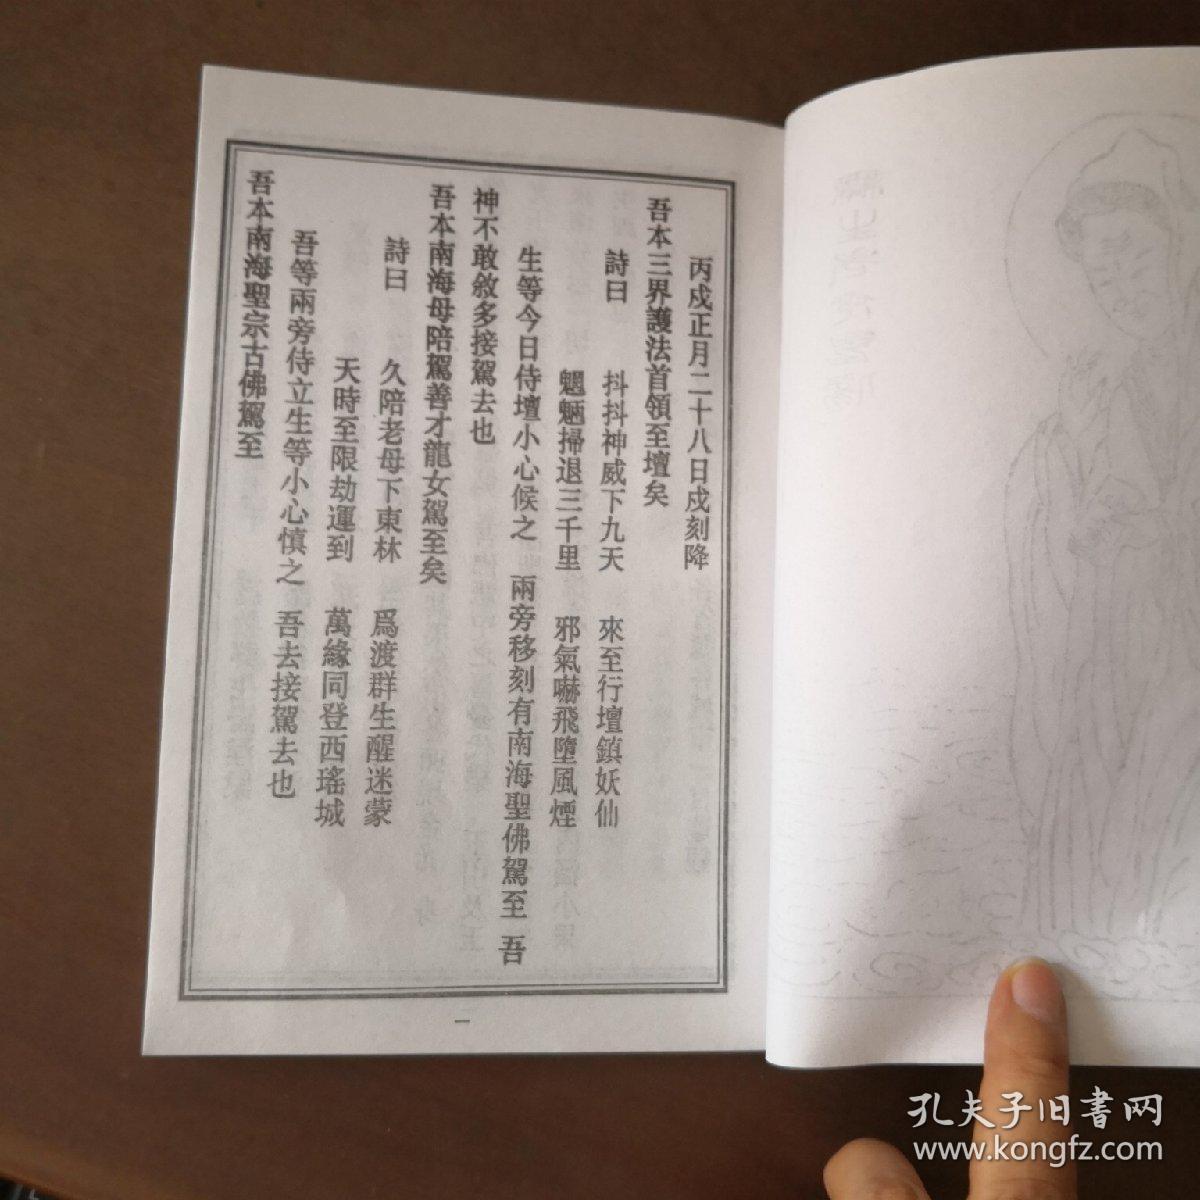 丙戍正月二十八日戍刻降
吾本三界護法首領至壇矣
詩曰　抖抖神威下九天　來至行壇鎮妖仙
魍魎掃退三千里　邪氣嚇飛墮風煙
生等今日侍壇小心候之　兩旁移刻有南海聖佛駕至　吾
神不敢敘多接駕去也
吾本南海母陪駕善才龍女駕至矣
詩曰　久陪老母下東林　爲渡群生醒迷蒙
天時至限劫運到　萬緣同登西瑤城
吾等兩旁侍立生等小心慎之　吾去接駕去也
吾本南海聖宗古佛駕至
一
孔夫子旧书网
www.kongfz.com